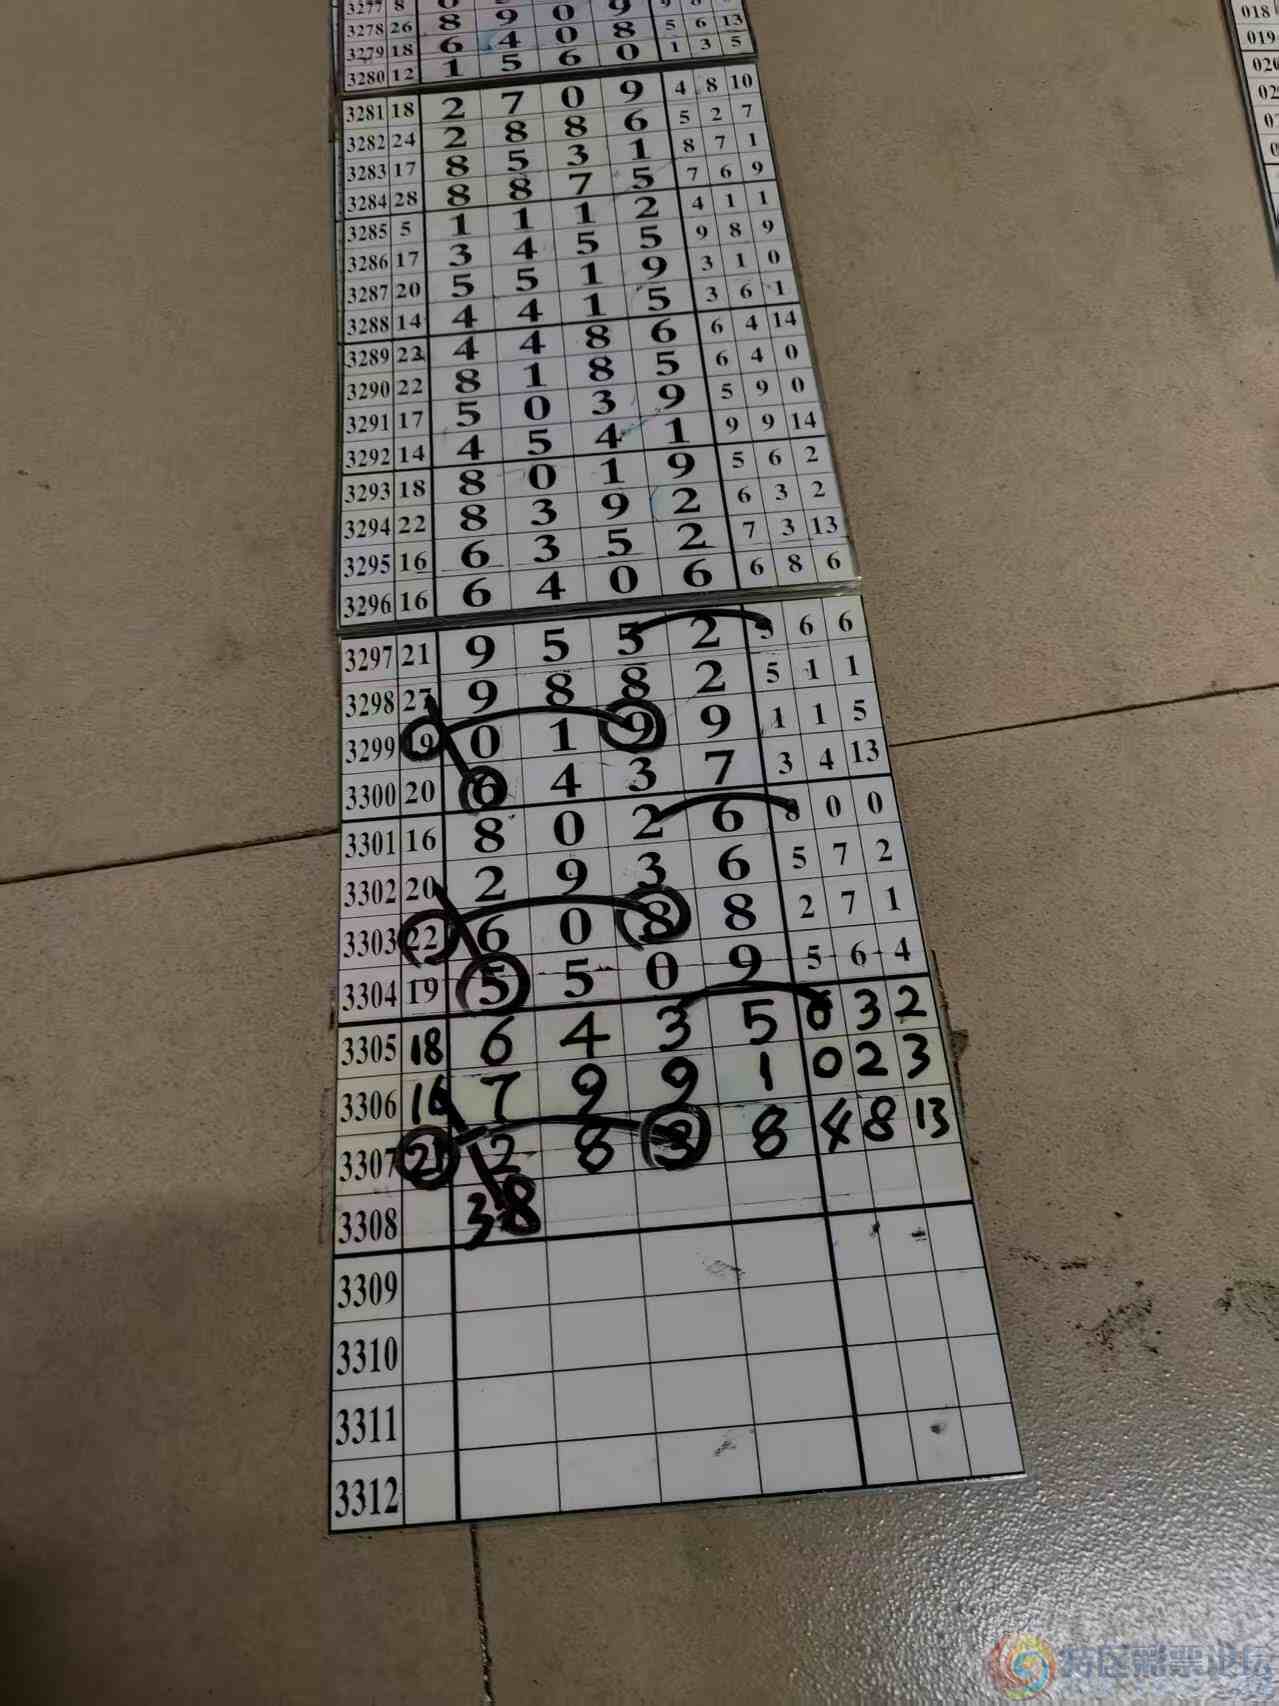 3277 8
3278 26 8 9 0 9 5 6 13
3279 18 6 4 0 8 1 3 5
3280 12 1 5 6 0
3281 18 2 7 0 9 4 8 10
3282 24 2 8 8 6 5 2 7
3283 17 8 5 3 1 8 7 1
3284 28 8 8 7 5 7 6 9
3285 5 1 1 1 2 4 1 1
3286 17 3 4 5 5 9 8 9
3287 20 5 5 1 9 3 1 0
3288 14 4 4 1 5 3 6 1
3289 22 4 4 8 6 6 4 14
3290 22 8 1 8 5 6 4 0
3291 17 5 0 3 9 5 9 0
3292 14 4 5 4 1 9 9 14
3293 18 8 0 1 9 5 6 2
3294 22 8 3 9 2 6 3 2
3295 16 6 3 5 2 7 3 13
3296 16 6 4 0 6 6 8 6
3297 21 9 5 5 2 5 6 6
3298 27 9 8 8 2 5 1 1
3299 19 0 1 9 9 1 1 5
3300 20 6 4 3 7 3 4 13
3301 16 8 0 2 6 8 0 0
3302 20 2 9 3 6 5 7 2
3303 22 6 0 8 8 2 7 1
3304 19 5 5 0 9 5 6 4
3305 18 6 4 3 5 0 3 2
3306 16 7 9 9 1 0 2 3
3307 21 2 8 3 8 4 8 13
3308 38
3309
3310
3311
3312
018
019
特区彩票论坛